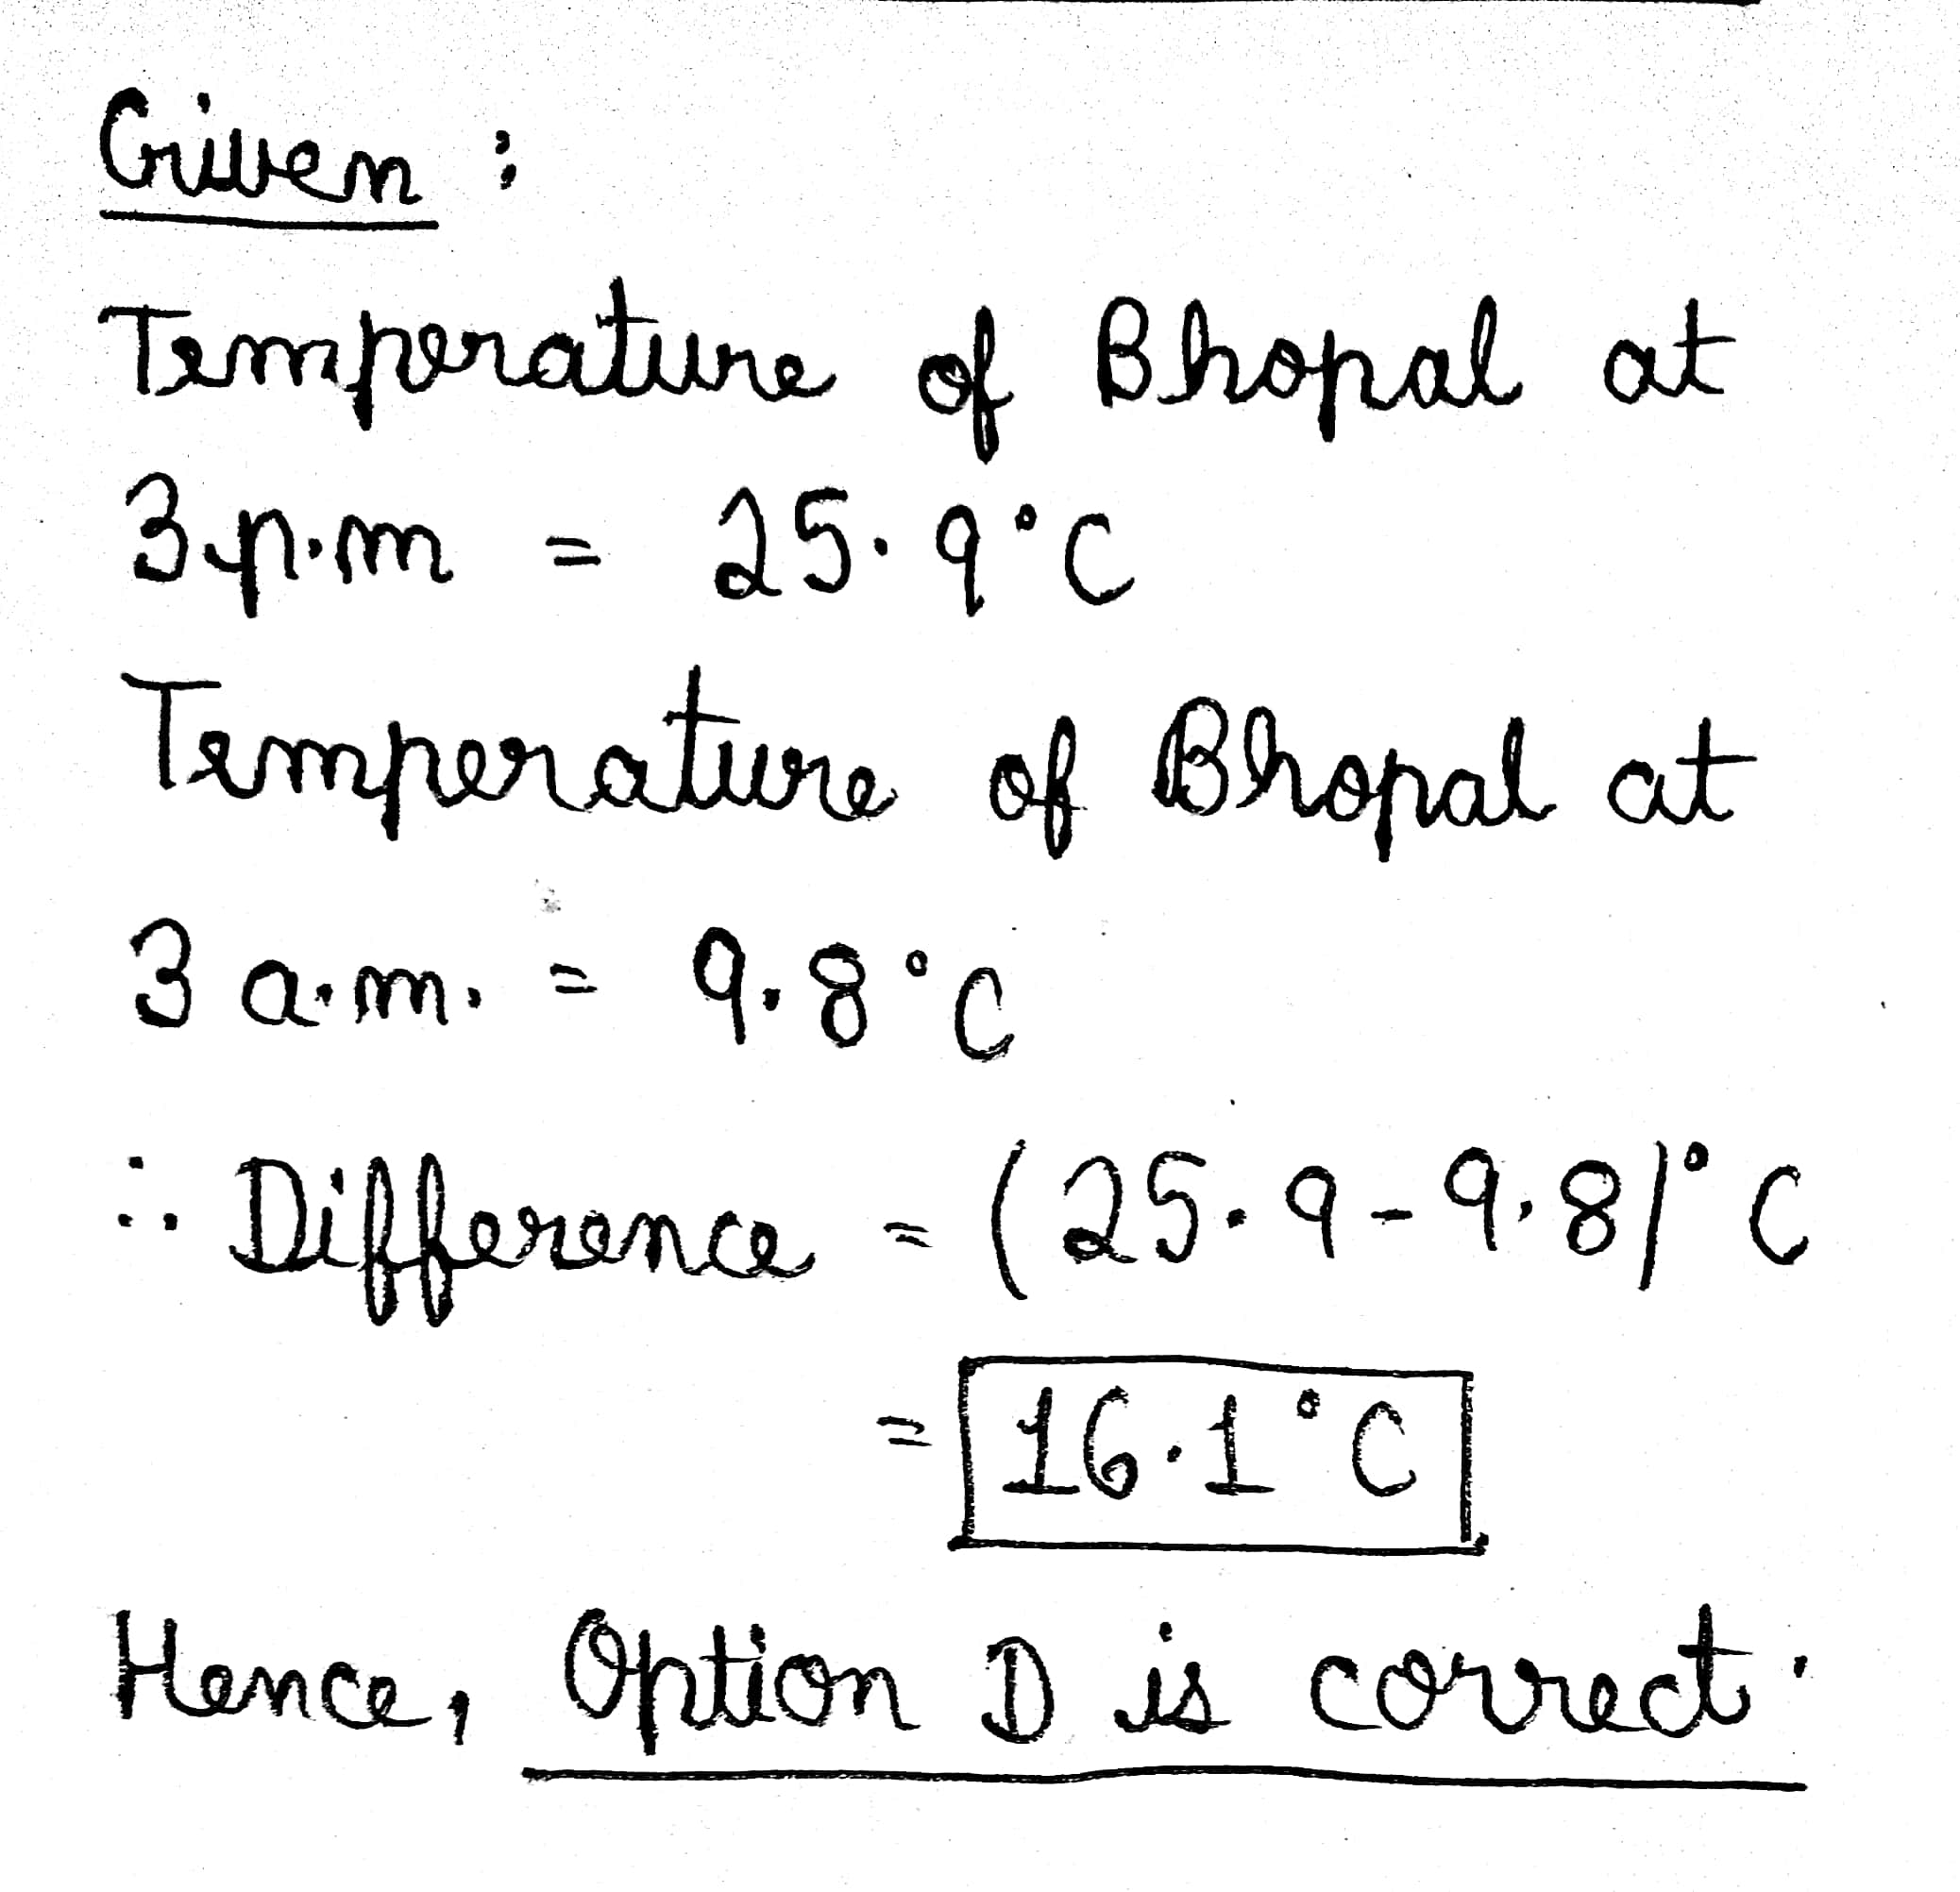 Given :
Temperature of Bhopal at
3 p.m = 25.9°C
Temperature of Bhopal at
3 a.m. = 9.8°C
∴ Difference = (25.9-9.8)°C
= 16.1°C
Hence, Option D is correct.